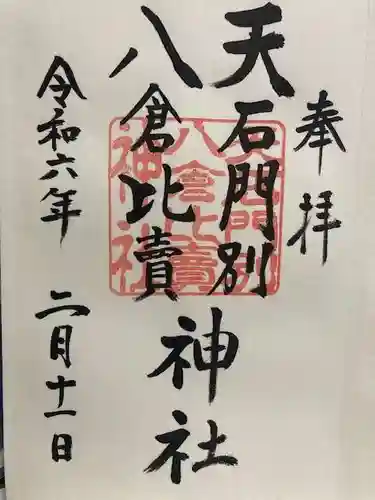 奉拝
天石門別
八倉比賣
神社
令和六年 二月十一日
天石門別
八倉比賣
神社